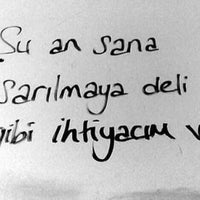 Şu an sana
sarılmaya deli
gibi ihtiyacım v